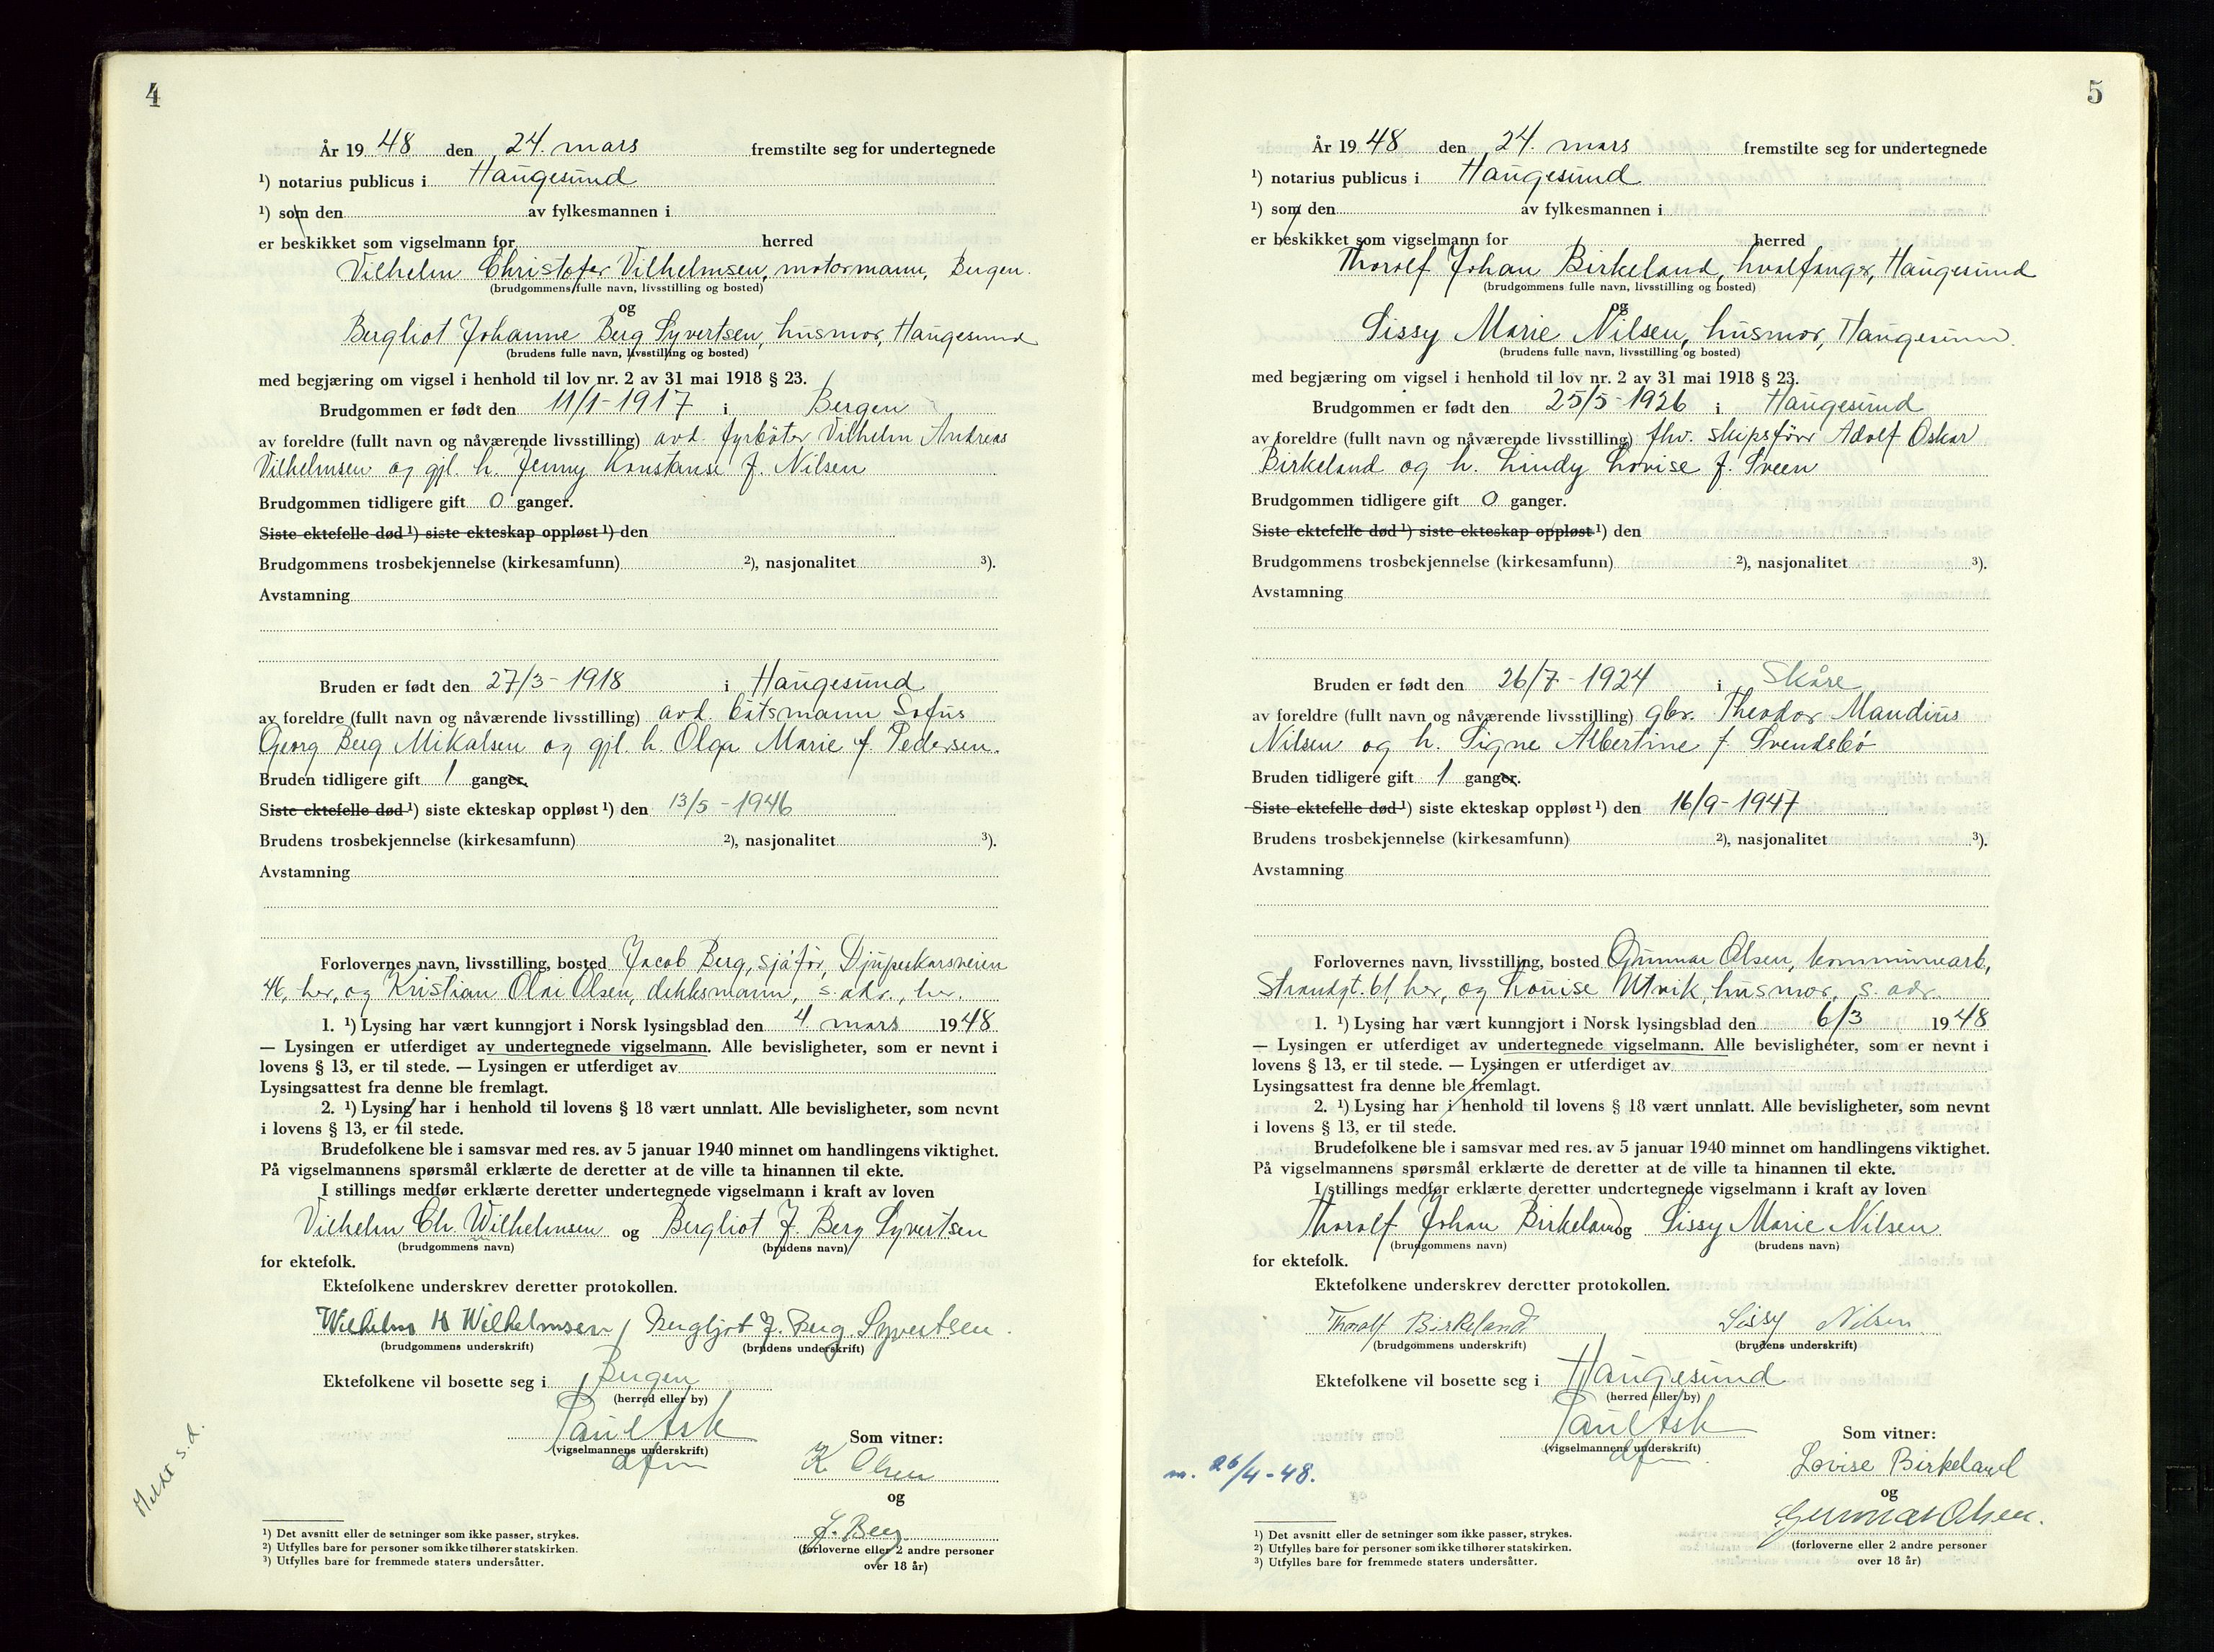 4
År 1948 den 24. mars fremstilte seg for undertegnede
¹) notarius publicus i Haugesund
¹) som den av fylkesmannen i
er beskikket som vigselmann for herred
Vilhelm Christofer Vilhelmsen, motormann, Bergen.
(brudgommens fulle navn, livsstilling og bosted)
og
Bergliot Johanne Berg Syvertsen, husmor, Haugesund
(brudens fulle navn, livsstilling og bosted)
med begjæring om vigsel i henhold til lov nr. 2 av 31 mai 1918 § 23.
Brudgommen er født den 11/1-1917 i Bergen
av foreldre (fullt navn og nåværende livsstilling) avd. fyrbøter Vilhelm Andreas
Vilhelmsen og gjl. h. Jenny Konstanse f. Nilsen
Brudgommen tidligere gift 0 ganger.
Siste ektefelle død ¹) siste ekteskap oppløst ¹) den
Brudgommens trosbekjennelse (kirkesamfunn) ²), nasjonalitet ³).
Avstamning
Bruden er født den 27/3-1918 i Haugesund
av foreldre (fullt navn og nåværende livsstilling) avd. båtsmann Sofus
Georg Berg Mikalsen og gjl. h. Olga Marie f. Pedersen.
Bruden tidligere gift 1 ganger.
Siste ektefelle død ¹) siste ekteskap oppløst ¹) den 13/5-1946
Brudens trosbekjennelse (kirkesamfunn) ²), nasjonalitet ³).
Avstamning
Forlovernes navn, livsstilling, bosted Jacob Berg, sjåfør, Djupeskarsveien
46, her, og Kristian Olai Olsen, dekksmann, s. adr., her.
1. ¹) Lysing har vært kunngjort i Norsk lysingsblad den 4. mars 1948
— Lysingen er utferdiget av undertegnede vigselmann. Alle bevisligheter, som er nevnt i
lovens § 13, er til stede. — Lysingen er utferdiget av
Lysingsattest fra denne ble fremlagt.
2. ¹) Lysing har i henhold til lovens § 18 vært unnlatt. Alle bevisligheter, som nevnt
i lovens § 13, er til stede.
Brudefolkene ble i samsvar med res. av 5 januar 1940 minnet om handlingens viktighet.
På vigselmannens spørsmål erklærte de deretter at de ville ta hinannen til ekte.
I stillings medfør erklærte deretter undertegnede vigselmann i kraft av loven
Vilhelm Ch. Wilhelmsen og Bergliot J. Berg Syvertsen
(brudgommens navn) (brudens navn)
for ektefolk.
Ektefolkene underskrev deretter protokollen.
Wilhelm K Wilhelmsen / Bergljot J. Berg. Syvertsen.
(brudgommens underskrift) (brudens underskrift)
Ektefolkene vil bosette seg i Bergen
(herred eller by)
Paul Ask
(vigselmannens underskrift)
dfm
Som vitner:
K. Olsen
og
J. Berg
(forloverne eller 2 andre personer
over 18 år)
Meldt s.d.
¹) Det avsnitt eller de setninger som ikke passer, strykes.
²) Utfylles bare for personer som ikke tilhører statskirken.
³) Utfylles bare for fremmede staters undersåtter.
5
År 1948 den 24. mars fremstilte seg for undertegnede
¹) notarius publicus i Haugesund
¹) som den av fylkesmannen i
er beskikket som vigselmann for herred
Thoralf Johan Birkeland, hvalfanger, Haugesund
(brudgommens fulle navn, livsstilling og bosted)
og
Sissy Marie Nilsen, husmor, Haugesund.
(brudens fulle navn, livsstilling og bosted)
med begjæring om vigsel i henhold til lov nr. 2 av 31 mai 1918 § 23.
Brudgommen er født den 25/5-1926 i Haugesund
av foreldre (fullt navn og nåværende livsstilling) fhv. skipsfører Adolf Oskar
Birkeland og h. Lindy Lovise f. Sveen
Brudgommen tidligere gift 0 ganger.
Siste ektefelle død ¹) siste ekteskap oppløst ¹) den
Brudgommens trosbekjennelse (kirkesamfunn) ²), nasjonalitet ³).
Avstamning
Bruden er født den 26/7-1924 i Skåre
av foreldre (fullt navn og nåværende livsstilling) gbr. Theodor Maudius
Nilsen og h. Signe Albertine f. Svendsbö
Bruden tidligere gift 1 ganger.
Siste ektefelle død ¹) siste ekteskap oppløst ¹) den 16/9-1947
Brudens trosbekjennelse (kirkesamfunn) ²), nasjonalitet ³).
Avstamning
Forlovernes navn, livsstilling, bosted Gunnar Olsen, kommunearb,
Strandgt. 61, her, og Louise Utvik, husmor, s. adr.
1. ¹) Lysing har vært kunngjort i Norsk lysingsblad den 6/3 1948
— Lysingen er utferdiget av undertegnede vigselmann. Alle bevisligheter, som er nevnt i
lovens § 13, er til stede. — Lysingen er utferdiget av
Lysingsattest fra denne ble fremlagt.
2. ¹) Lysing har i henhold til lovens § 18 vært unnlatt. Alle bevisligheter, som nevnt
i lovens § 13, er til stede.
Brudefolkene ble i samsvar med res. av 5 januar 1940 minnet om handlingens viktighet.
På vigselmannens spørsmål erklærte de deretter at de ville ta hinannen til ekte.
I stillings medfør erklærte deretter undertegnede vigselmann i kraft av loven
Thoralf Johan Birkeland og Sissy Marie Nilsen
(brudgommens navn) (brudens navn)
for ektefolk.
Ektefolkene underskrev deretter protokollen.
Thoralf Birkeland. Sissy Nilsen.
(brudgommens underskrift) (brudens underskrift)
Ektefolkene vil bosette seg i Haugesund
(herred eller by)
Paul Ask
(vigselmannens underskrift)
dfm.
Som vitner:
Lovise Birkeland
og
Gunnar Olsen.
(forloverne eller 2 andre personer
over 18 år)
m. 26/4-48.
¹) Det avsnitt eller de setninger som ikke passer, strykes.
²) Utfylles bare for personer som ikke tilhører statskirken.
³) Utfylles bare for fremmede staters undersåtter.